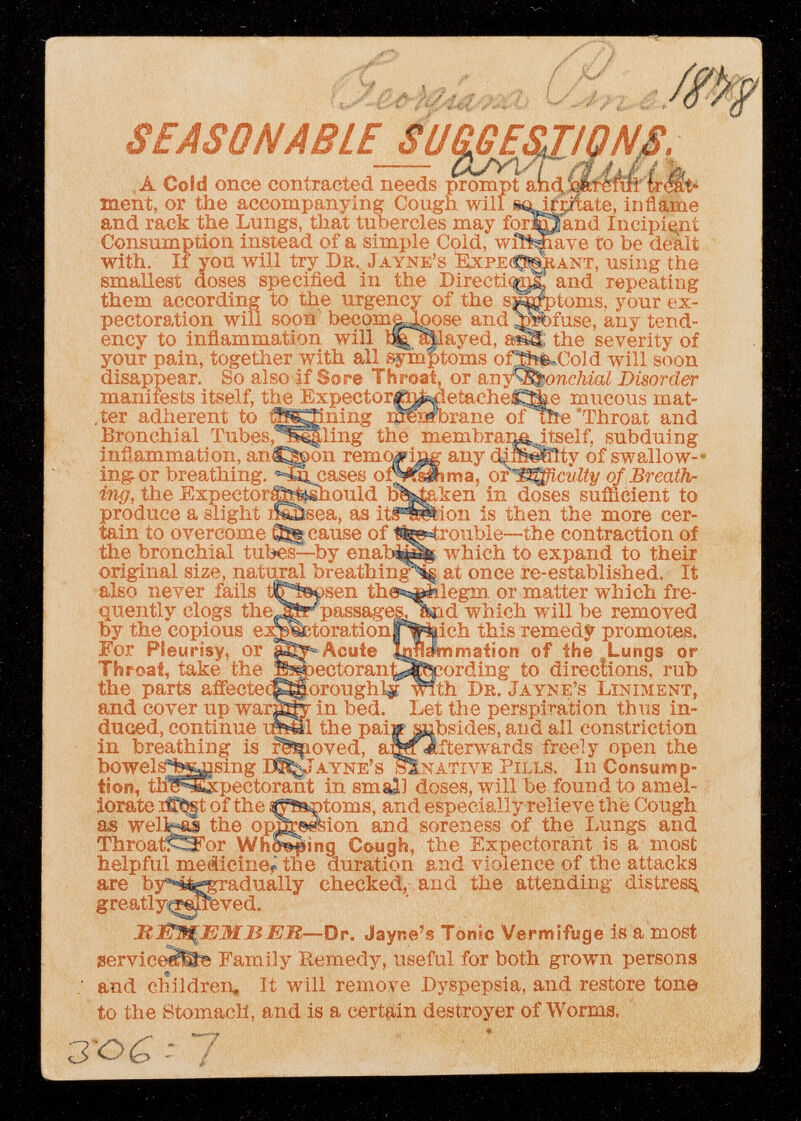 Georgiana Pine. 1878
SEASONABLE SUGGESTIONS.
aunt Julia
A Cold once contracted needs prompt and careful treat-
ment, or the accompanying Cough will so irritate, inflame
and rack the Lungs, that tubercles may form, and Incipient
Consumption instead of a simple Cold, will have to be dealt
with. If you will try DR. JAYNE'S EXPECTORANT, using the
smallest doses specified in the Directions, and repeating
them according to the urgency of the symptoms, your ex-
pectoration will soon become loose and profuse, any tend-
ency to inflammation will be allayed, and the severity of
your pain, together with all symptoms of the Cold will soon
disappear. So also if Sore Throat, or any Bronchial Disorder
manifests itself, the Expectorant detaches the mucous mat-
ter adherent to the lining membrane of the Throat and
Bronchial Tubes, healing the membrane itself, subduing
inflammation, and soon removing any difficulty of swallow-
ing or breathing. In cases of Asthma, or Difficulty of Breath-
ing, the Expectorant should be taken in doses sufficient to
produce a slight nausea, as its action is then the more cer-
tain to overcome the cause of the trouble—the contraction of
the bronchial tubes—by enabling which to expand to their
original size, natural breathing is at once re-established. It
also never fails to loosen the phlegm or matter which fre-
quently clogs the air passages, and which will be removed
by the copious expectoration which this remedy promotes.
For Pleurisy, or any Acute Inflammation of the Lungs or
Throat, take the Expectorant according to directions, rub
the parts affected thoroughly with DR. JAYNE'S LINIMENT,
and cover up warmly in bed. Let the perspiration thus in-
duced, continue until the pain subsides, and all constriction
in breathing is removed, and afterwards freely open the
bowels by using DR. JAYNE'S SANATIVE PILLS. In Consump-
tion, the Expectorant in small doses, will be found to amel-
iorate most of the symptoms, and especially relieve the Cough
as well as the oppression and soreness of the Lungs and
Throat. For Whooping Cough, the Expectorant is a most
helpful medicine; the duration and violence of the attacks
are by it gradually checked, and the attending distress
greatly relieved.
REMEMBER—Dr. Jayne's Tonic Vermifuge is a most
serviceable Family Remedy, useful for both grown persons
and children. It will remove Dyspepsia, and restore tone
to the Stomach, and is a certain destroyer of Worms.
Presented by
C S SAWYER Sr.
Walton Delaware Co
New York.
306-7